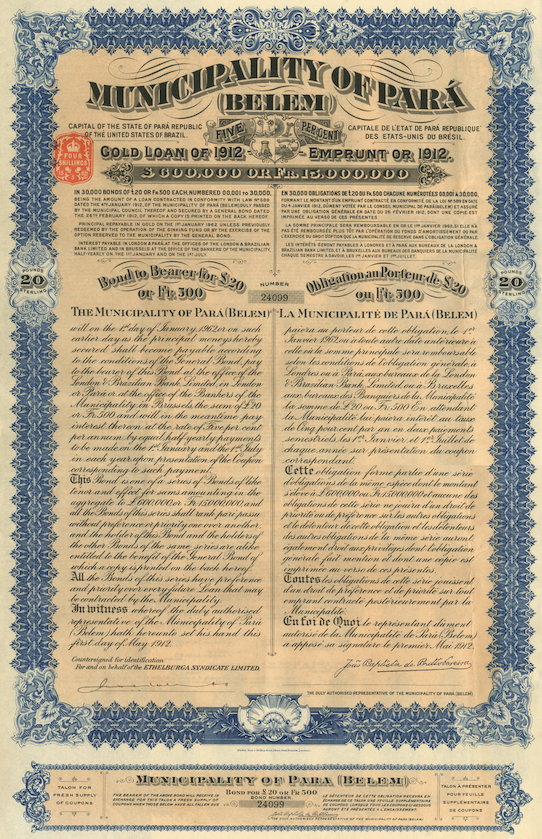 MUNICIPALITY OF PARÁ
(BELEM)
CAPITAL OF THE STATE OF PARÁ REPUBLIC
OF THE UNITED STATES OF BRAZIL.
FIVE PER CENT
CAPITALE DE L'ETAT DE PARÁ REPUBLIQUE
DES ETATS-UNIS DU BRÉSIL.
FOUR
SHILLINGS
GOLD LOAN OF 1912 - EMPRUNT OR 1912.
£600,000 OR FR. 15,000,000
IN 30,000 BONDS OF £20 OR FR.500 EACH, NUMBERED 00,001 TO 30,000,
BEING THE AMOUNT OF A LOAN CONTRACTED IN CONFORMITY WITH LAW Nº 589
DATED THE 4TH JANUARY 1912, OF THE MUNICIPALITY OF PARÁ (BELEM) DULY PASSED
BY THE MUNICIPAL COUNCIL THEREOF AND SECURED BY A GENERAL BOND DATED
THE 26TH FEBRUARY 1912, OF WHICH A COPY IS PRINTED ON THE BACK HEREOF.
PRINCIPAL REPAYABLE IN GOLD ON THE 1ST JANUARY 1962, UNLESS PREVIOUSLY
REDEEMED BY THE OPERATION OF THE SINKING FUND OR BY THE EXERCISE OF THE
OPTION RESERVED TO THE MUNICIPALITY BY THE GENERAL BOND.
INTEREST PAYABLE IN LONDON & PARÁ AT THE OFFICES OF THE LONDON & BRAZILIAN
BANK LIMITED AND IN BRUSSELS AT THE OFFICE OF THE BANKERS OF THE MUNICIPALITY
HALF-YEARLY ON THE 1ST JANUARY AND ON THE 1ST JULY.
EN 30,000 OBLIGATIONS DE £20 OU FR.500 CHACUNE NUMÉROTÉES 00,001 À 30,000,
FORMANT LE MONTANT D'UN EMPRUNT CONTRACTÉ EN CONFORMITÉ DE LA LOI Nº 589 EN DATE
DU 4 JANVIER 1912, DÛMENT VOTÉE PAR LE CONSEIL MUNICIPAL DE PARÁ (BELEM) ET ASSURÉ
PAR UNE OBLIGATION GÉNÉRALE EN DATE DU 26 FÉVRIER 1912, DONT UNE COPIE EST
IMPRIMÉE AU VERSO DE CES PRÉSENTES
POUNDS
20
STERLING
POUNDS
20
STERLING
Bond to Bearer for £20
or Fr. 500
NUMBER
24099
Obligation au Porteur de £20
ou Fr. 500
THE MUNICIPALITY OF PARÁ (BELEM)
will on the 1st day of January, 1962, or on such
earlier day as the principal moneys hereby
secured shall become payable according
to the conditions of the General Bond, pay
to the bearer of this Bond at the office of the
London & Brazilian Bank, Limited, in London
or Pará or at the office of the Bankers of the
Municipality in Brussels, the sum of £20
or Fr. 500 and will in the meantime pay
interest thereon at the rate of Five per cent
per annum by equal half-yearly payments
to be made on the 1st January and the 1st July
in each year upon presentation of the Coupon
corresponding to such payment.
This Bond is one of a series of Bonds of like
tenor and effect for sums amounting in the
aggregate to £600,000 or Fr. 15,000,000 and
all the Bonds of this series shall rank pari passu
without preference or priority one over another,
and the holder of this Bond and the holders of
the other Bonds of the same series are alike
entitled to the benefit of the General Bond of
which a copy is printed on the back hereof.
All the Bonds of this series have preference
and priority over every future Loan that may
be contracted by the Municipality.
In witness whereof the duly authorised
representative of the Municipality of Pará
(Belem) hath hereunto set his hand this
first day of May 1912.
LA MUNICIPALITÉ DE PARÁ (BELEM)
paiera au porteur de cette obligation, le 1er
Janvier 1962 ou à toute autre date antérieure à
celle où la somme principale sera remboursable
selon les conditions de l'obligation générale, à
Londres ou à Pará aux bureaux de la London
& Brazilian Bank, Limited, ou à Bruxelles
aux bureaux des Banquiers de la Municipalité
la somme de £20 ou Fr. 500. En attendant
la Municipalité lui paiera intérêt au taux
de Cinq pour cent par an en deux paiements
semestriels les 1er Janvier et 1er Juillet de
chaque année sur présentation du coupon
correspondant.
Cette obligation forme partie d'une série
d'obligations de la même espèce dont le montant
s'élève à £600,000 ou Fr. 15,000,000 et aucune des
obligations de cette série ne jouira d'un droit de
priorité ou de préférence sur les autres obligations
et le détenteur de cette obligation et les détenteurs
des autres obligations de la même série auront
également droit aux privilèges dont l'obligation
générale fait mention et dont une copie est
imprimée au verso de ces présentes.
Toutes les obligations de cette série jouissent
d'un droit de préférence et de priorité sur tout
emprunt contracté postérieurement par la
Municipalité.
En foi de Quoi le représentant dûment
autorisé de la Municipalité de Pará (Belem)
a apposé sa signature le premier Mai 1912.
Countersigned for identification
For and on behalf of the ETHELBURGA SYNDICATE LIMITED.
THE DULY AUTHORISED REPRESENTATIVE OF THE MUNICIPALITY OF PARÁ (BELEM)
MUNICIPALITY OF PARA (BELEM)
BOND FOR £20 OR FR 500
BOND NUMBER
24099
TALON FOR
FRESH SUPPLY
OF COUPONS
TALON À PRÉSENTER
POUR FEUILLE
SUPPLÉMENTAIRE
DE COUPONS